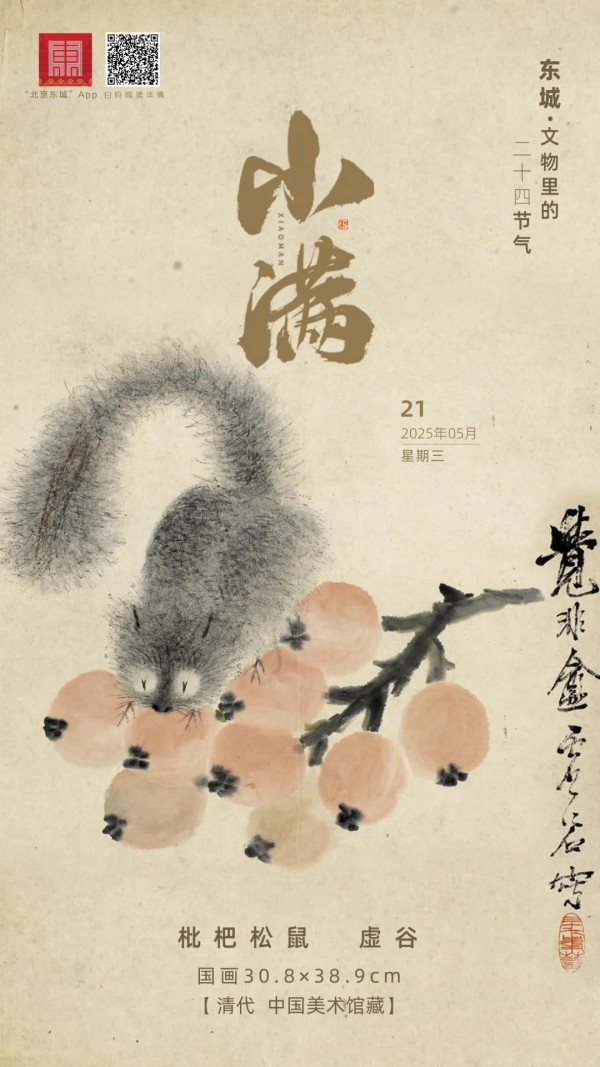 東
"北京东城"App 扫码阅读详情
东城·文物里的
二十四节气
小满
XIAOMAN
21
2025年05月
星期三
覺非盦虚谷寫
枇杷松鼠 虚谷
国画30.8×38.9cm
【清代 中国美术馆藏】